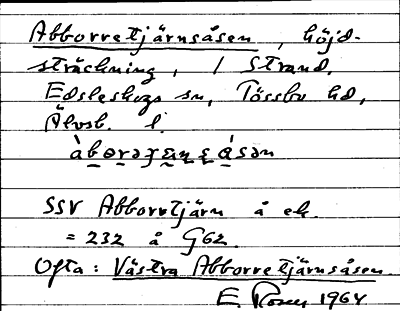 Abborretjärnsåsen, höjd-
sträckning, / Strand,
Edsleskogs sn, Tössbo hd,
Älvsb. l.
SSV Abborrtjärn å ek.
= 232 å G62.
Ofta: Västra Abborretjärnsåsen
E. 1964